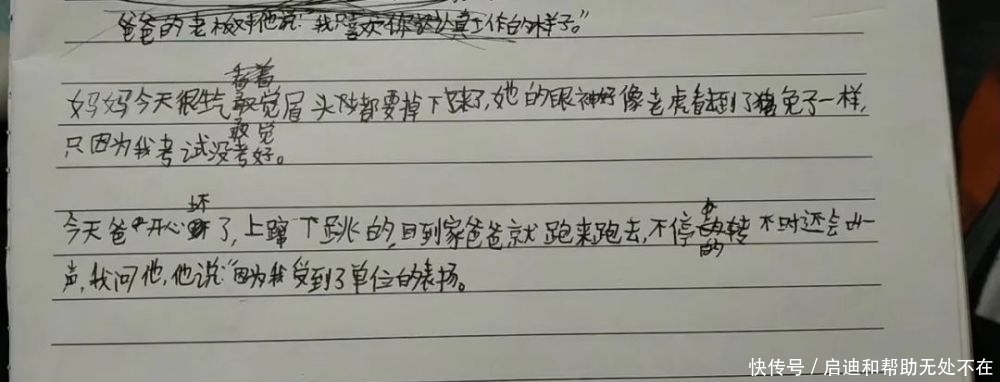 爸爸的老板对他说:"我只喜欢你认真工作的样子。"
看着
妈妈今天很生气敢觉眉头都要掉下来了,她的眼神好像老虎看到了兔子一样,
敢觉
只因为我考试没考好。
坏
今天爸爸开心坏了,上蹿下跳的,回到家爸爸就跑来跑去,不停的转不时还会叫一
声,我问他,他说:"因为我受到了单位的表扬。
快传号/启迪和帮助无处不在